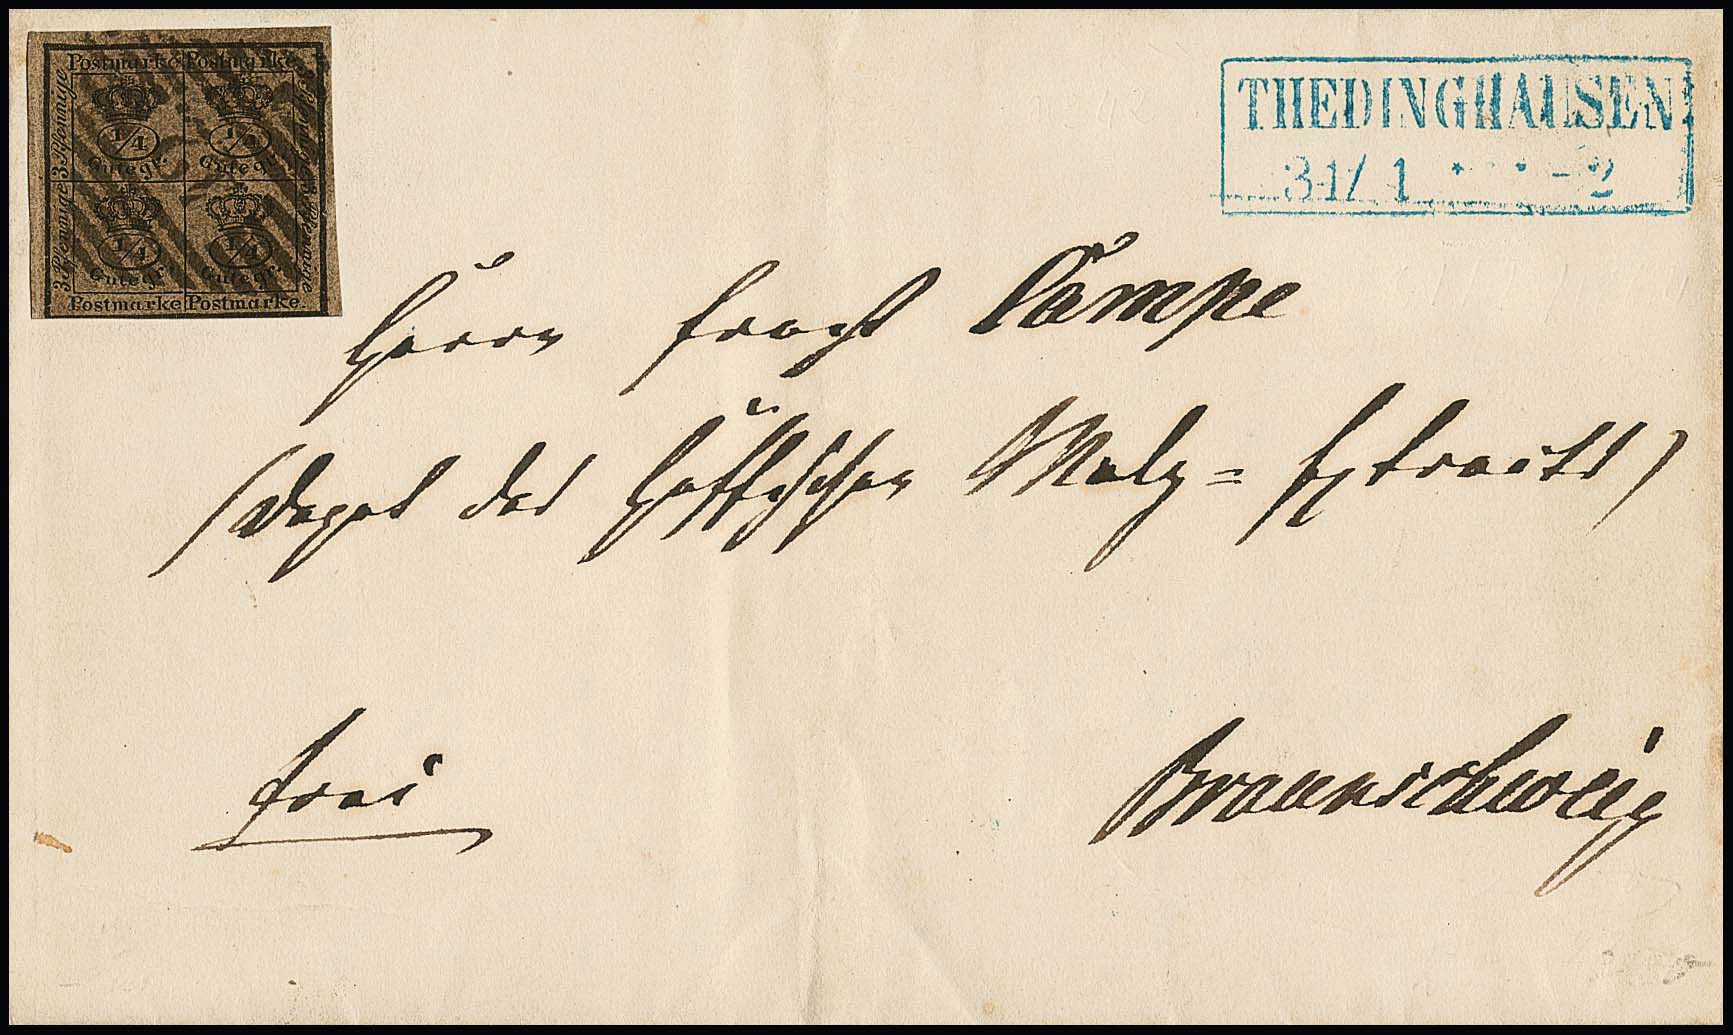 Postmarke Postmarke.
3 Pfennige 3 Pfennige
3 Pfennige 3 Pfennige
1/4 1/4
Gutegr. Gutegr.
1/4 1/4
Gutegr. Gutegr.
Postmarke Postmarke.
THEDINGHAUSEN
31/1 * * - 2
Herrn Campe
(Depot des Hoffschen Malz=Extracts)
frei
Braunschweig